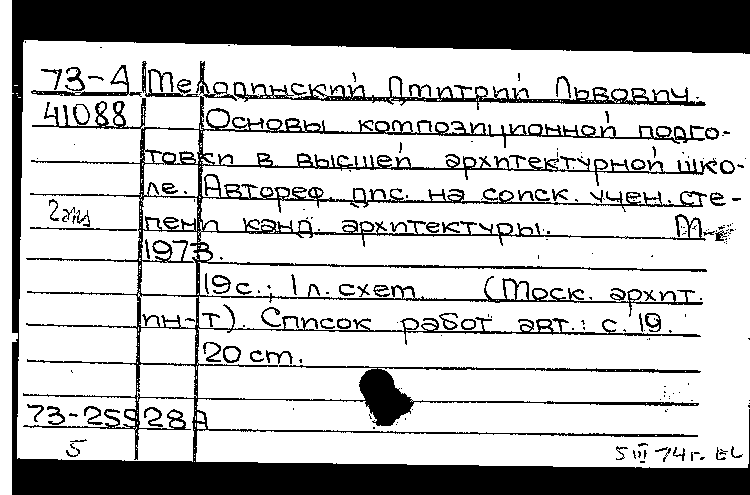 73-А Мелодинский, Дмитрий Львович.
41088 Основы композиционной подго-
товки в высшей архитектурной шко-
ле. Автореф. дис. на соиск. учен. сте-
2 экз пени канд. архитектуры. М.
1973.
19 с.; 1 л. схем. (Моск. архит.
ин-т). Список работ авт.: с. 19.
20 см.
73-25928А
5
5 III 74 г.